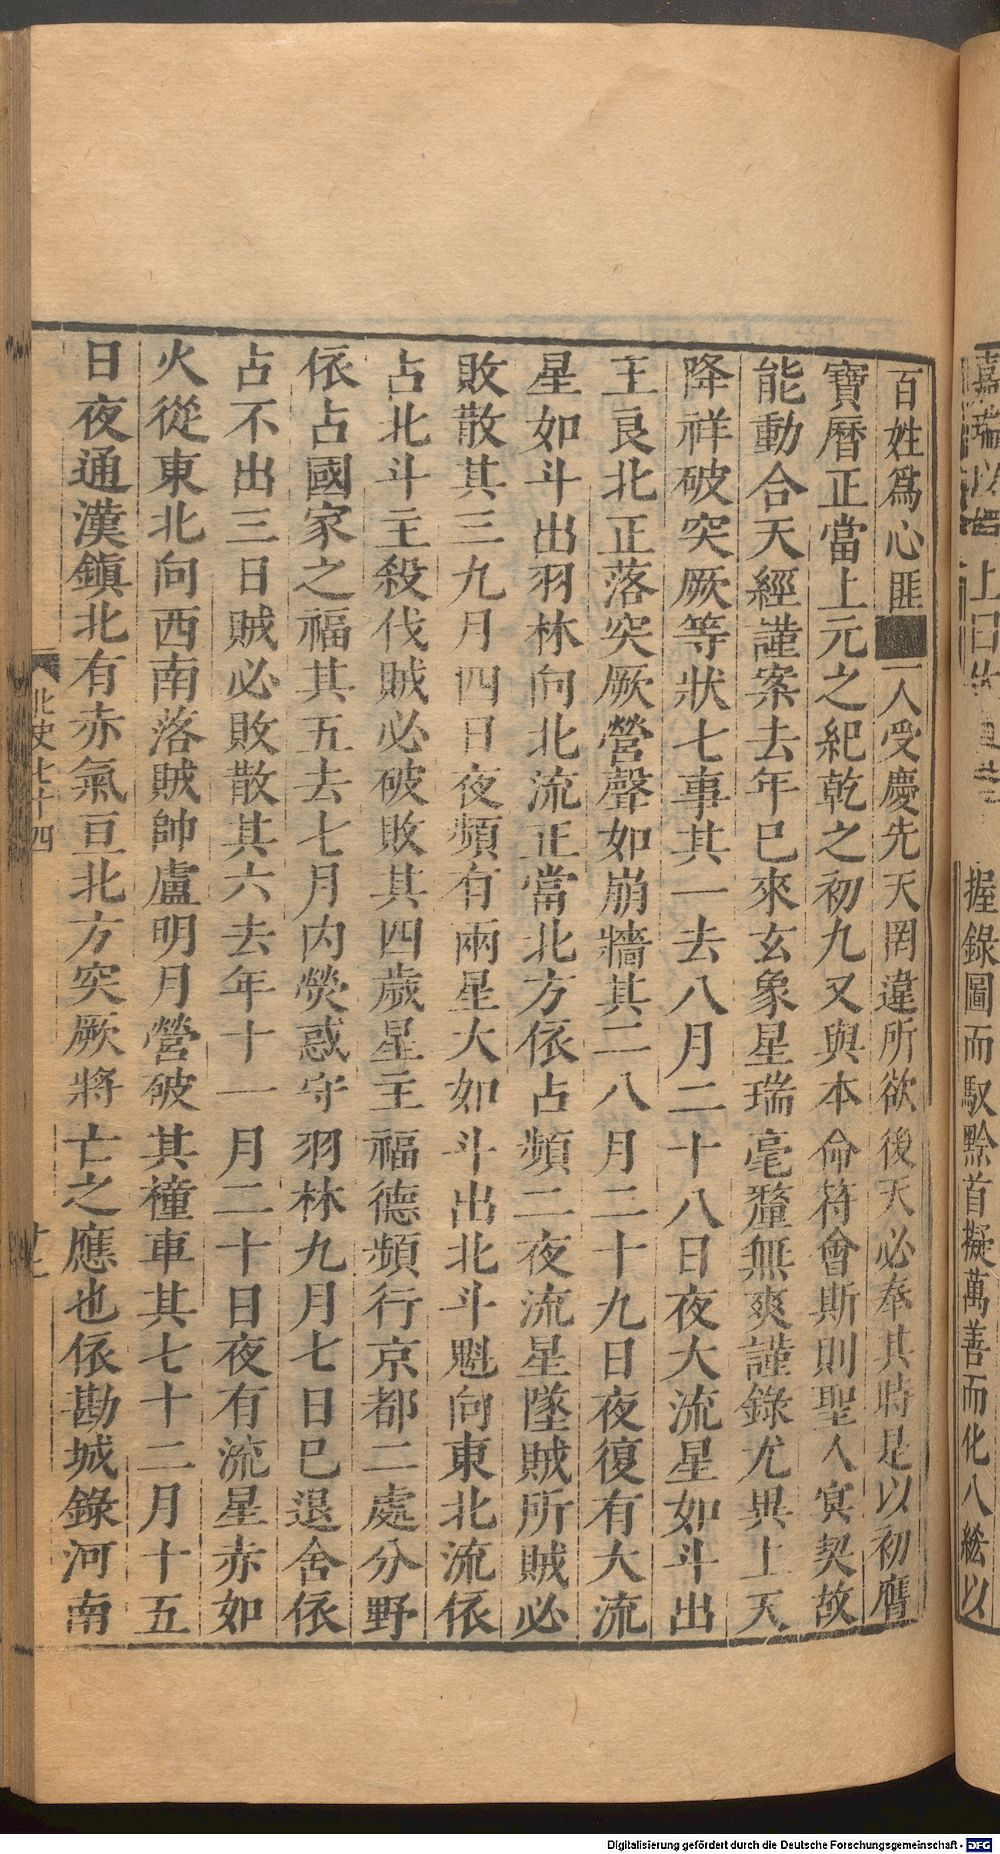 握錄圖而馭黔首擬萬善而化八紘以
百姓爲心匪■一人受慶先天罔違所欲後天必奉其時是以初膺
寶曆正當上元之紀乾之初九又與本命符會斯則聖人冥契故
能動合天經謹案去年巳來玄象星瑞毫釐無爽謹錄尤異上天
降祥破突厥等狀七事其一去八月二十八日夜大流星如斗出
王良北正落突厥營聲如崩牆其二八月二十九日夜復有大流
星如斗出羽林向北流正當北方依占頻二夜流星墜賊所賊必
敗散其三九月四日夜頻有兩星大如斗出北斗魁向東北流依
占北斗主殺伐賊必破敗其四歲星主福德頻行京都二處分野
依占國家之福其五去七月内熒惑守羽林九月七日巳退舍依
占不出三日賊必敗散其六去年十一月二十日夜有流星赤如
火從東北向西南落賊帥盧明月營破其橦車其七十二月十五
日夜通漢鎭北有赤氣亘北方突厥將亡之應也依勘城錄河南
北史七十四
Digitalisierung gefördert durch die Deutsche Forschungsgemeinschaft - DFG